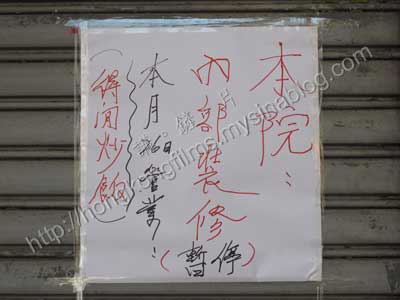 本院：
內部裝修
(暫停)
本月 日營業：
(得闲炒飯)
http://hongkongfilms.mysinablog.com